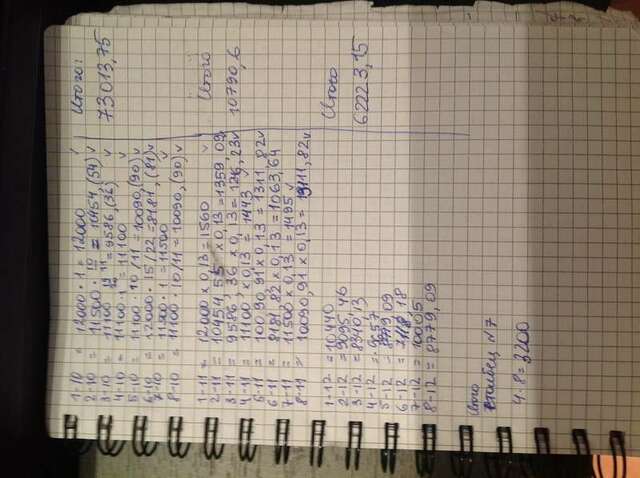 1-10 = 12000 · 1 = 12000 ✓
2-10 = 11500 · 10/11 = 10454,(54) ✓
3-10 = 11100 · = 9586,(36) ✓
4-10 = 11100 · 1 = 11100 ✓
5-10 = 11100 · 10/11 = 10090,(90) ✓
6-10 = 12000 · 15/22 = 8181,(81) ✓
7-10 = 11500 · 1 = 11500 ✓
8-10 = 11100 · 10/11 = 10090,(90) ✓
Итого:
73013,75
1-11 = 12000 x 0,13 = 1560 ✓
2-11 = 10454,55 x 0,13 = 1359,09 ✓
3-11 = 9586,36 x 0,13 = 1246,23 ✓
4-11 = 11100 x 0,13 = 1443 ✓
5-11 = 10090,91 x 0,13 = 1311,82 ✓
6-11 = 8181,82 x 0,13 = 1063,64
7-11 = 11500 x 0,13 = 1495 ✓
8-11 = 10090,91 x 0,13 = 1311,82 ✓
Итого
10790,6
1-12 = 10440
2-12 = 9095,46
3-12 = 8340,13
4-12 = 9657
5-12 = 8779,09
6-12 = 7118,18
7-12 = 10005
8-12 = 8779,09
Итого
62223,15
Итого
столбец №7
4·8 = 3200